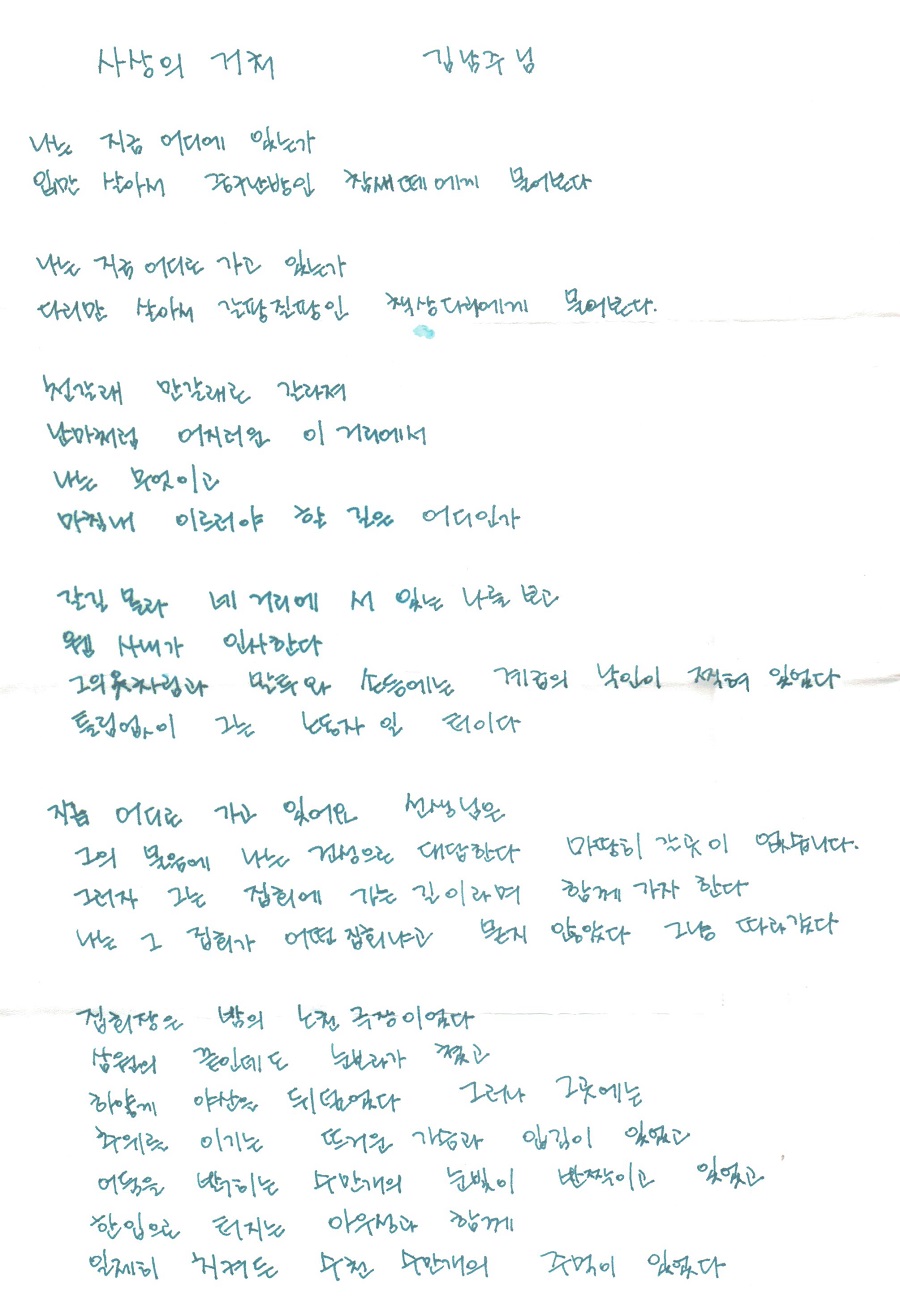 사상의 거처 김남주님
나는 지금 어디에 있는가
입만 살아서 중구난방인 참새떼에게 물어본다
나는 지금 어디로 가고 있는가
다리만 살아서 갈팡질팡인 책상다리에게 물어본다.
천갈래 만갈래로 갈라져
난마처럼 어지러운 이 거리에서
나는 무엇이고
마침내 이르러야 할 길은 어디인가
갈길 몰라 네 거리에 서 있는 나를 보고
웬 사내가 인사한다
그의 옷차림과 말투와 손등에는 계급의 낙인이 찍혀 있었다
틀림없이 그는 노동자 일 터이다
지금 어디로 가고 있어요 선생님은
그의 물음에 나는 건성으로 대답한다 마땅히 갈곳이 없습니다.
그러자 그는 집회에 가는 길이라며 함께 가자 한다
나는 그 집회가 어떤 집회냐고 묻지 않았다 그냥 따라갔다
집회장은 밤의 노천 극장이었다
삼월의 끝인데도 눈보라가 쳤고
하얗게 야산을 뒤덮었다 그러나 그곳에는
추위를 이기는 뜨거운 가슴과 입김이 있었고
어둠을 밝히는 수만개의 눈빛이 반짝이고 있었고
한입으로 터지는 아우성과 함께
일제히 치켜든 수천 수만개의 주먹이 있었다